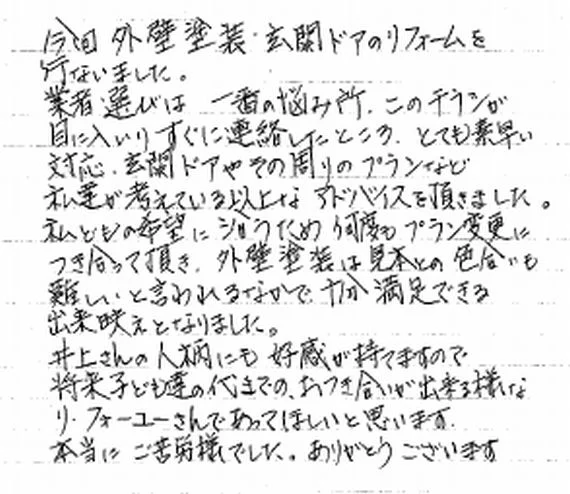 今回 外壁塗装・玄関ドアのリフォームを
行ないました。
業者選びは 一番の悩み所、このチラシが
目に入いりすぐに連絡したところ、とても素早い
対応、玄関ドアやその周りのプランなど
私達が考えている以上な アドバイスを頂きました。
私どもの希望に沿うため 何度も プラン変更に
つき合って頂き、外壁塗装は見本との色合いも
難しいと言われるなかで 十分 満足できる
出来映えとなりました。
井上さんの人柄にも 好感が持てますので
将来子ども達の代までの、おつき合いが出来る様な
リ・フォーユーさんであってほしいと思います。
本当に ご苦労様でした。ありがとうございます